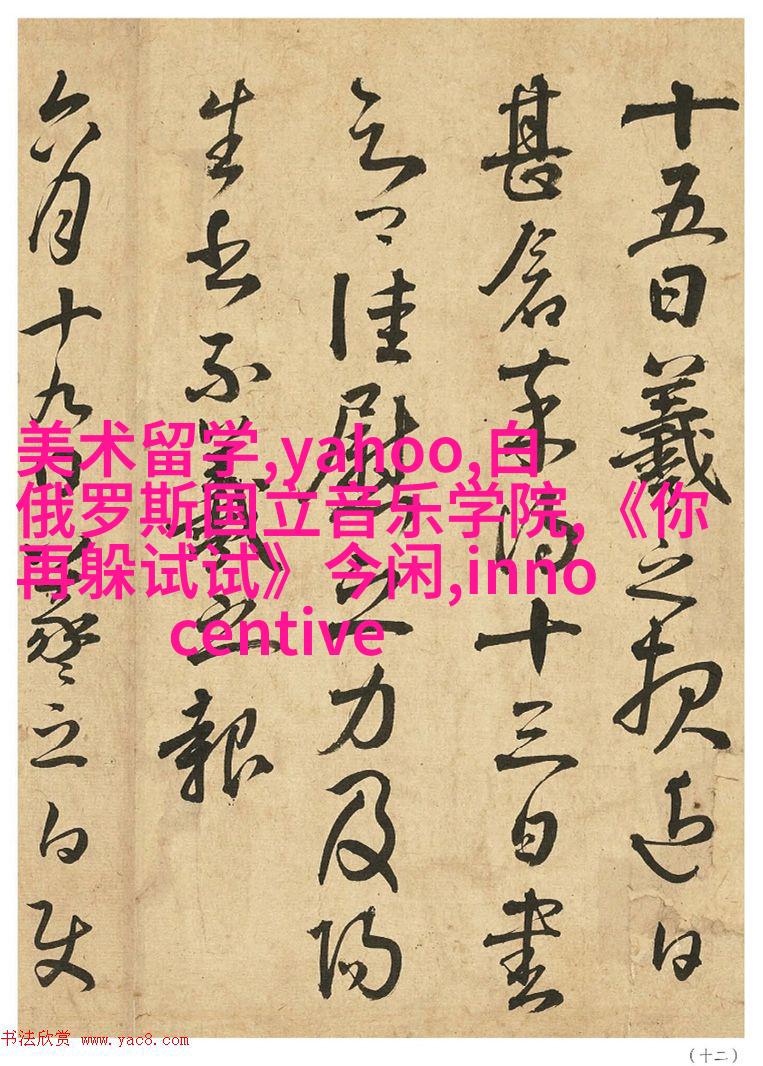 十五日羲之頓近日
甚得十三日書
佳慰之力及
生不羲之報
六月十九日之白使
美术留学,yahoo,白
俄罗斯国立音乐学院,《你
再躲试试》今闲,inno
centive
书法欣赏 www.yac8.com
(十二)